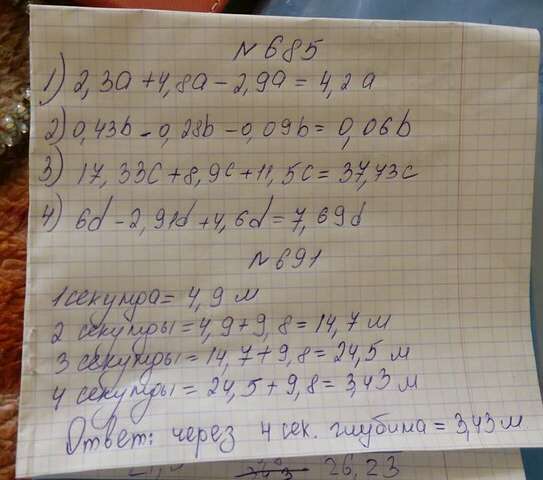 №685
1) 2,3a + 4,8a - 2,9a = 4,2a
2) 0,43b - 0,28b - 0,09b = 0,06b
3) 17,33c + 8,9c + 11,5c = 37,73c
4) 6d - 2,91d + 4,6d = 7,69d
№691
1 секунда = 4,9 м
2 секунды = 4,9 + 9,8 = 14,7 м
3 секунды = 14,7 + 9,8 = 24,5 м
4 секунды = 24,5 + 9,8 = 3,43 м
Ответ: через 4 сек. глубина = 3,43 м
26,23